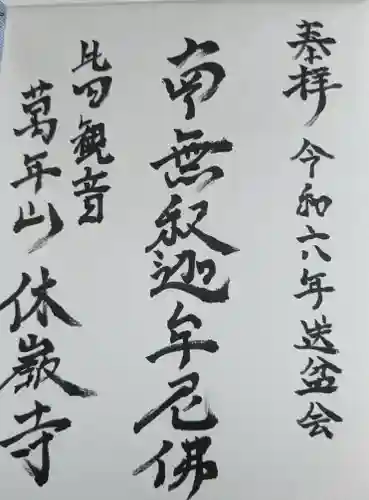 奉拝
令和六年送盆会
南無釈迦牟尼佛
岩田観音
萬年山
休巌寺